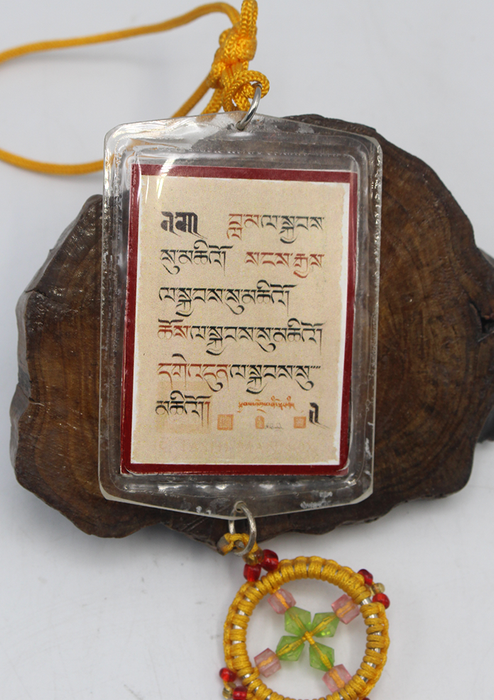 ༄༅། བླ་མ་ལ་སྐྱབས་
སུ་མཆིའོ། སངས་རྒྱས་
ལ་སྐྱབས་སུ་མཆིའོ།
ཆོས་ལ་སྐྱབས་སུ་མཆིའོ།
དགེ་འདུན་ལ་སྐྱབས་སུ་
མཆིའོ།།